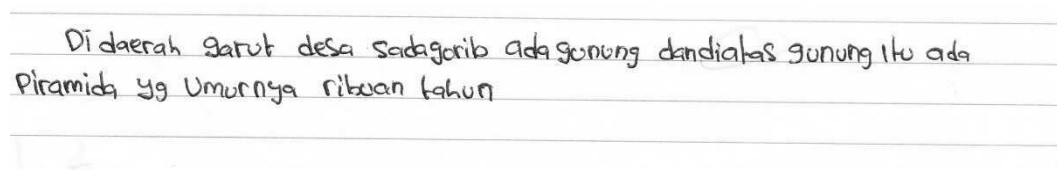 Di daerah garut desa Sadagorib ada gunung dandiatas gunung itu ada
Piramida yg Umurnya ribuan tahun